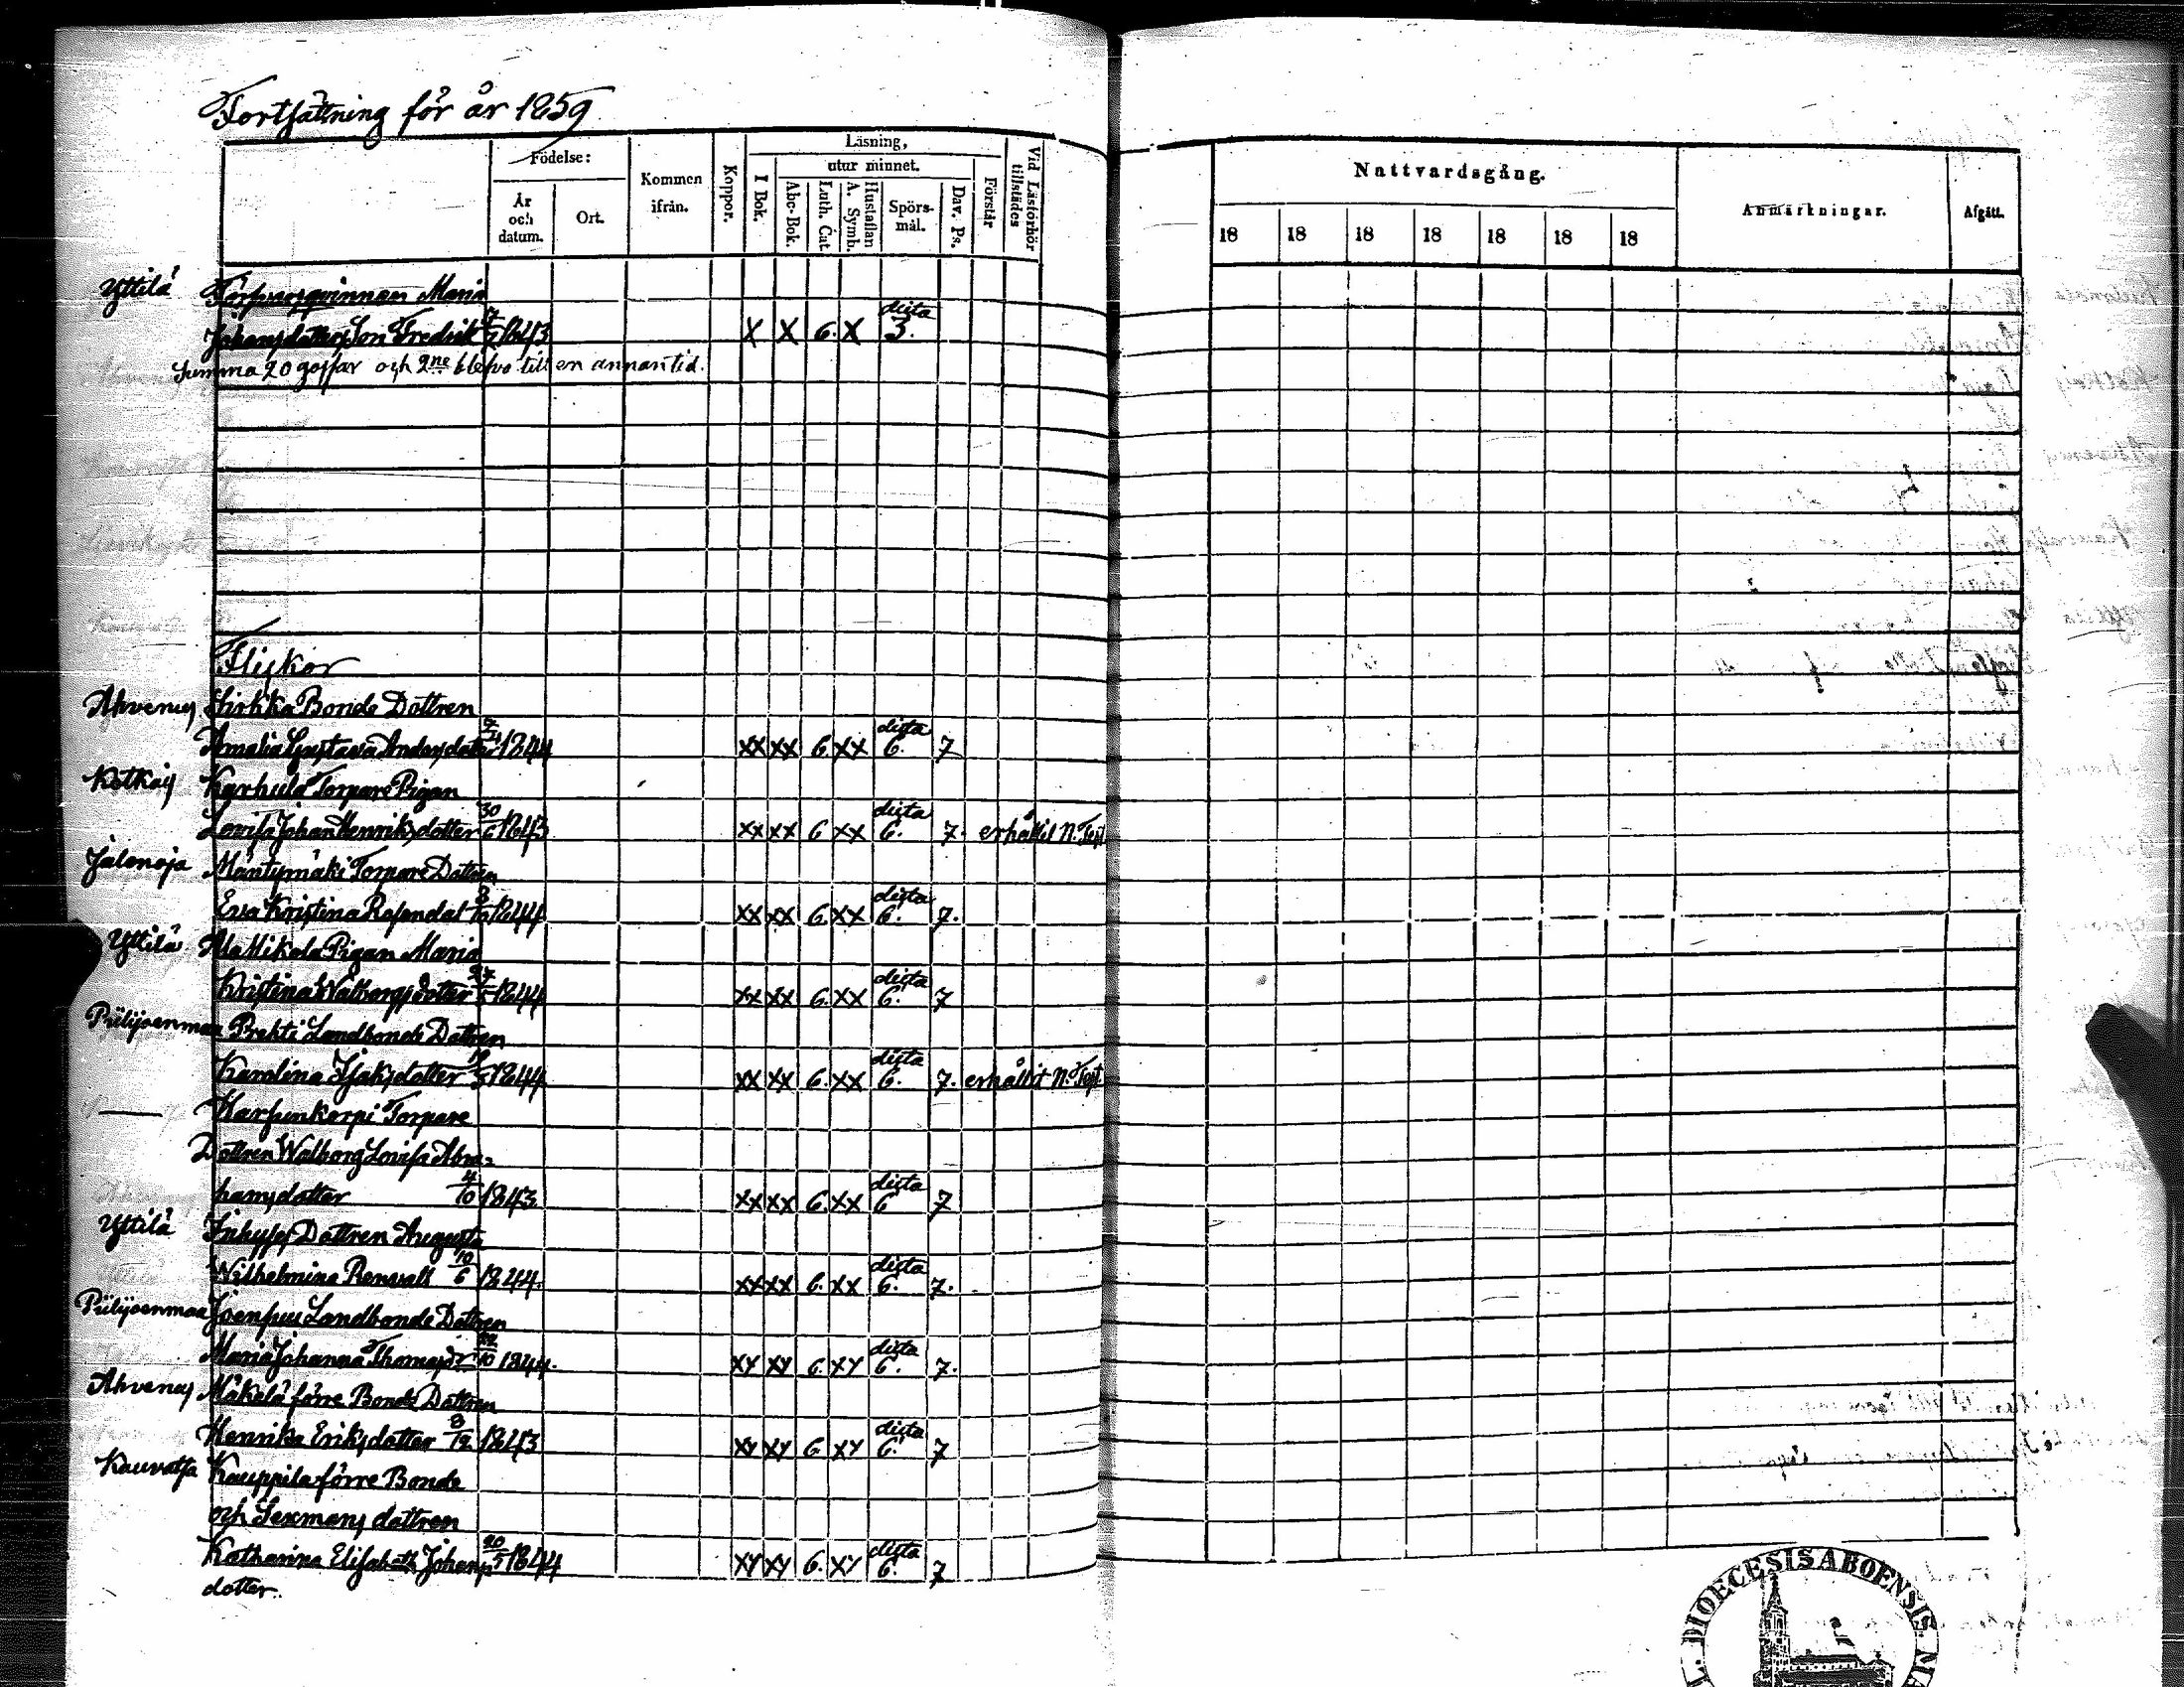 Fortsättning för år 1859
Födelse:
År och datum.
Ort.
Kommen ifrån.
Koppor.
Läsning,
I Bok.
utur minnet.
Abc-Bok.
Luth. Cat.
Hustaflan A. Symb.
Spörsmål.
Dav. Ps.
Förstår
Vid Läsförhör tillstädes
Nattvardsgång.
18 18 18 18 18 18 18
Anmärkningar.
Afgått.
Yttilä qvinnan Maria
Johansdotters Son Fredrik 1843 X X 6. X dista 3.
Summa 20 gossar och 2ne blefvo till en annan tid.
Flickor
Ahvenus Sirkka Bonde Dottren
Amalia Gustava Andersdotter 1844 XX XX 6 XX dista 6. 7
Kotkais Karhula Torpare Pigan
Lovisa Johan Henriksdotter 30/6 1843 XX XX 6 XX dista 6. 7. erhållit N. Test
Jalonoja Mäntymäki Torpare Dottren
Eva Kristina Rosendal 3/10 1844 XX XX 6. XX dista 6. 7.
Yttilä Ala Mikola Pigan Maria
Kristina Walborgsdotter 27/5 1844 XX XX 6. XX dista 6. 7
Piilijoenmaa Prekti Landbonde Dottren
Karolina Isaksdotter 19/5 1844 XX XX 6. XX dista 6. 7. erhållit N. Test.
— Harjunkorpi Torpare
Dottren Walborg Lovisa Abra-
hamsdotter 4/10 1843 XX XX 6. XX dista 6 7
Yttilä Inhyses Dottren Augusta
Wilhelmina Renvall 10/6 1844. XX XX 6. XX dista 6. 7.
Piilijoenmaa Joenpuu Landbonde Dottren
Maria Johanna Thomasdr 22/10 1844. XY XY 6. XY dista 6. 7.
Ahvenus Mäkelä förre Bonde Dottren
Henrika Eriksdotter 3/12 1843 XY XY 6. XY dista 6. 7
Kauvatsa Kauppila förre Bonde
och Sexmans dottren
Katharina Elisabeth Johans 20/5 1844 XY XY 6. XY dista 6. 7
dotter.
DIOECESIS ABOENSIS